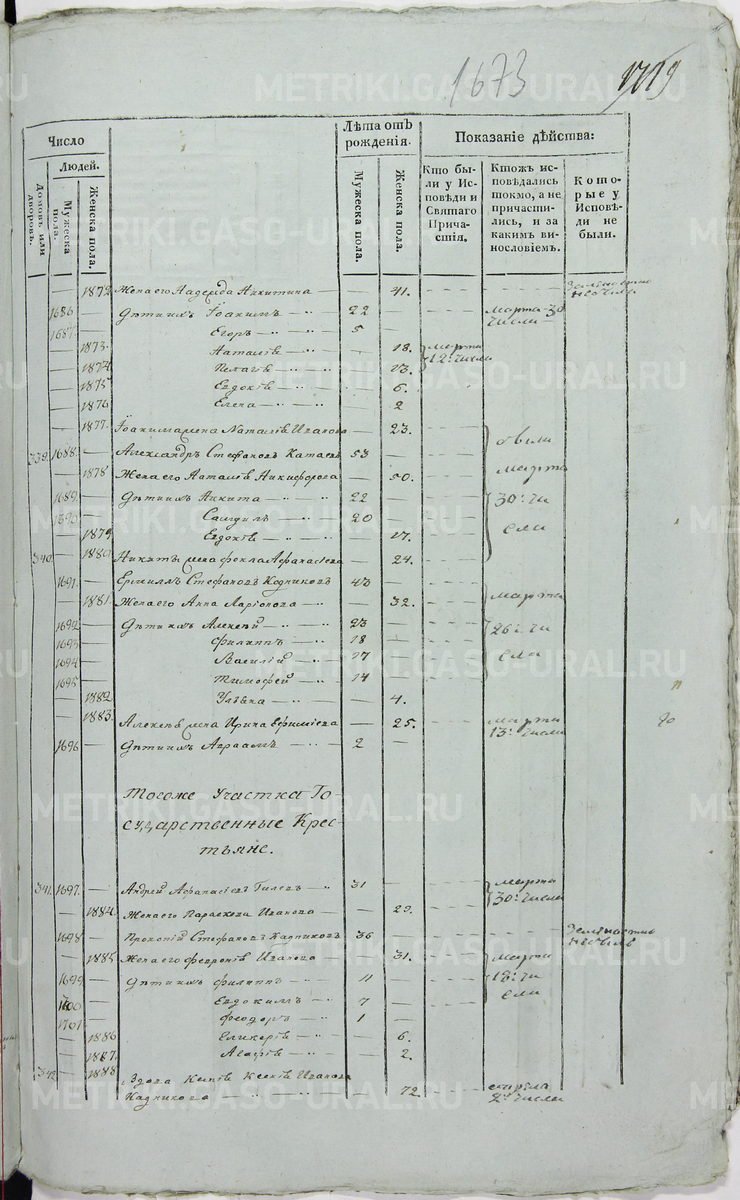 1673 1719
Число
Людей.
Домовъ или дворовъ.
Мужеска пола.
Женска пола.
Лѣта отъ рожденія.
Мужеска пола.
Женска пола.
Показаніе дѣйства:
Кто бы-
ли у Ис-
повѣди и
Святаго
Прича-
стія.
Ктожъ ис-
повѣдались
токмо, а не
причасти-
лись, и за
какимъ ви-
нословіемъ.
Кото-
рые у
Исповѣ-
ди не
были.
1872 Жена его Надежда Никитина 41.
1686 Дѣти ихъ Іоакимъ 22 марта 30 числа
1687 Егоръ 5
1873 Наталія 18. марта
1874 Пелагія 13. 12. числа
1875 Евдокія 6.
1876 Елена 2
1877. Іоакима жена Наталія Иванова 23.
339. 1688. Александръ Стефановъ Катаевъ 53 были
1878 Жена его Наталія Никифорова 50. марта
1689. Дѣти ихъ Никита 22 30. чи
1690. Самуилъ 20 сла
1879 Евдокія 17.
340. 1880 Никиты жена Фекла Афанасіева 24.
1691. Ермилъ Стефановъ Кадниковъ 43
1881. Жена его Анна Ларіонова 32. марта
1692 Дѣти ихъ Алексѣй 23 26. чи
1693 Филиппъ 18 сла
1694 Василій 17
1695 Тимофей 14
1882 Ульяна 4.
1883. Алексѣя жена Ирина Ефимиева 25. марта
13. числа
1696 Дѣти ихъ Авраамъ 2
Тогоже Участка Го-
сударственные Крес-
тьяне.
341. 1697. Андрей Афанасіевъ Гилевъ 31 марта
30. числа
1884. Жена его Параскева Иванова 29.
1698 Прокопій Стефановъ Кадниковъ 36
1885 Жена его Февронія Иванова 31. марта
1699 Дѣти ихъ Филиппъ 11 13. чи
1700 Евдокимъ 7 сла
1701 Феодоръ 1
1886 Гликерія 6.
1887. Агафія 2.
342. 1888 Вдова Ксенія Иванова
Кадникова 72. апрѣля
2. числа
METRIKI.GASO-URAL.RU